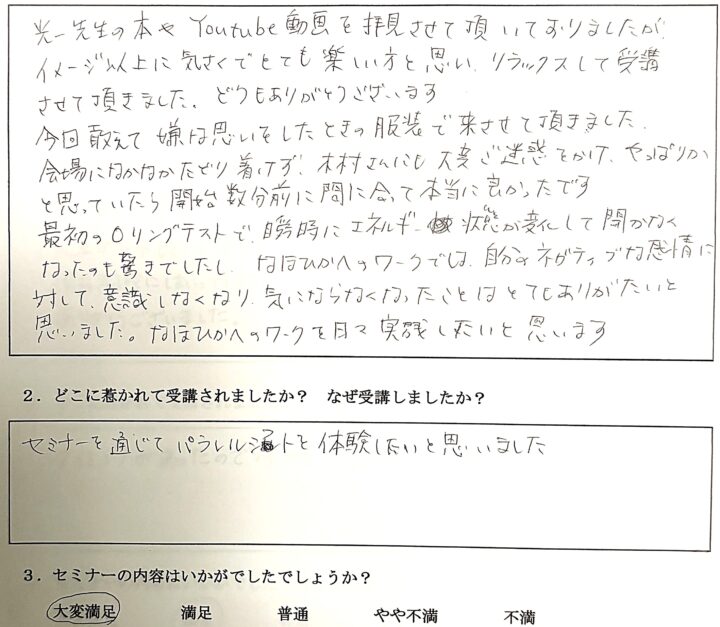 光一先生の本や Youtube動画を拝見させて頂いておりましたが、
イメージ以上に気さくでとても楽しい方と思い、リラックスして受講
させて頂きました。どうもありがとうございます
今回敢えて嫌な思いをしたときの服装で来させて頂きました。
会場になかなかたどり着けず、木村さんにも大変ご迷惑をかけ、やっぱりか
と思っていたら開始数分前に間に合って本当に良かったです
最初のOリングテストで、瞬時にエネルギー状態が変化して開かなく
なったのも驚きでしたし、なほひかへのワークでは、自分のネガティブな感情に
対して、意識しなくなり、気にならなくなったことはとてもありがたいと
思いました。なほひかへのワークを日々実践したいと思います
2．どこに惹かれて受講されましたか？ なぜ受講しましたか？
セミナーを通じてパラレルシフトを体験したいと思いました
3．セミナーの内容はいかがでしたでしょうか？
大変満足 満足 普通 やや不満 不満